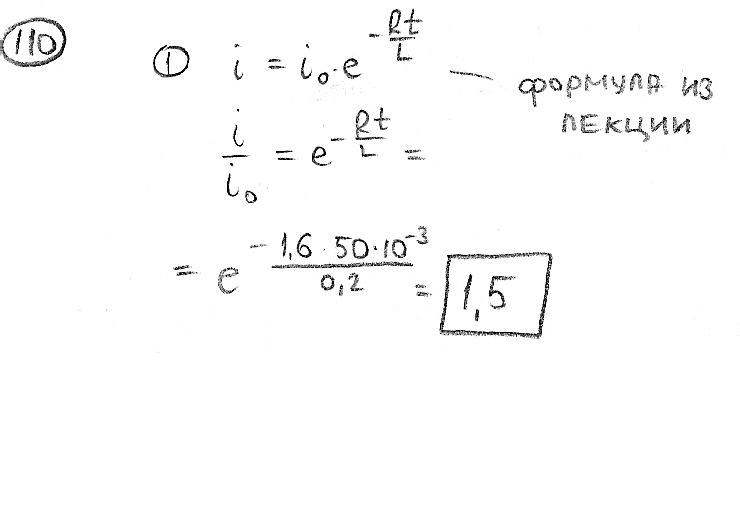 110
① i = i₀·e^(-Rt/L) — формула из лекции
i/i₀ = e^(-Rt/L) =
= e^(-1,6·50·10⁻³/0,2) = 1,5